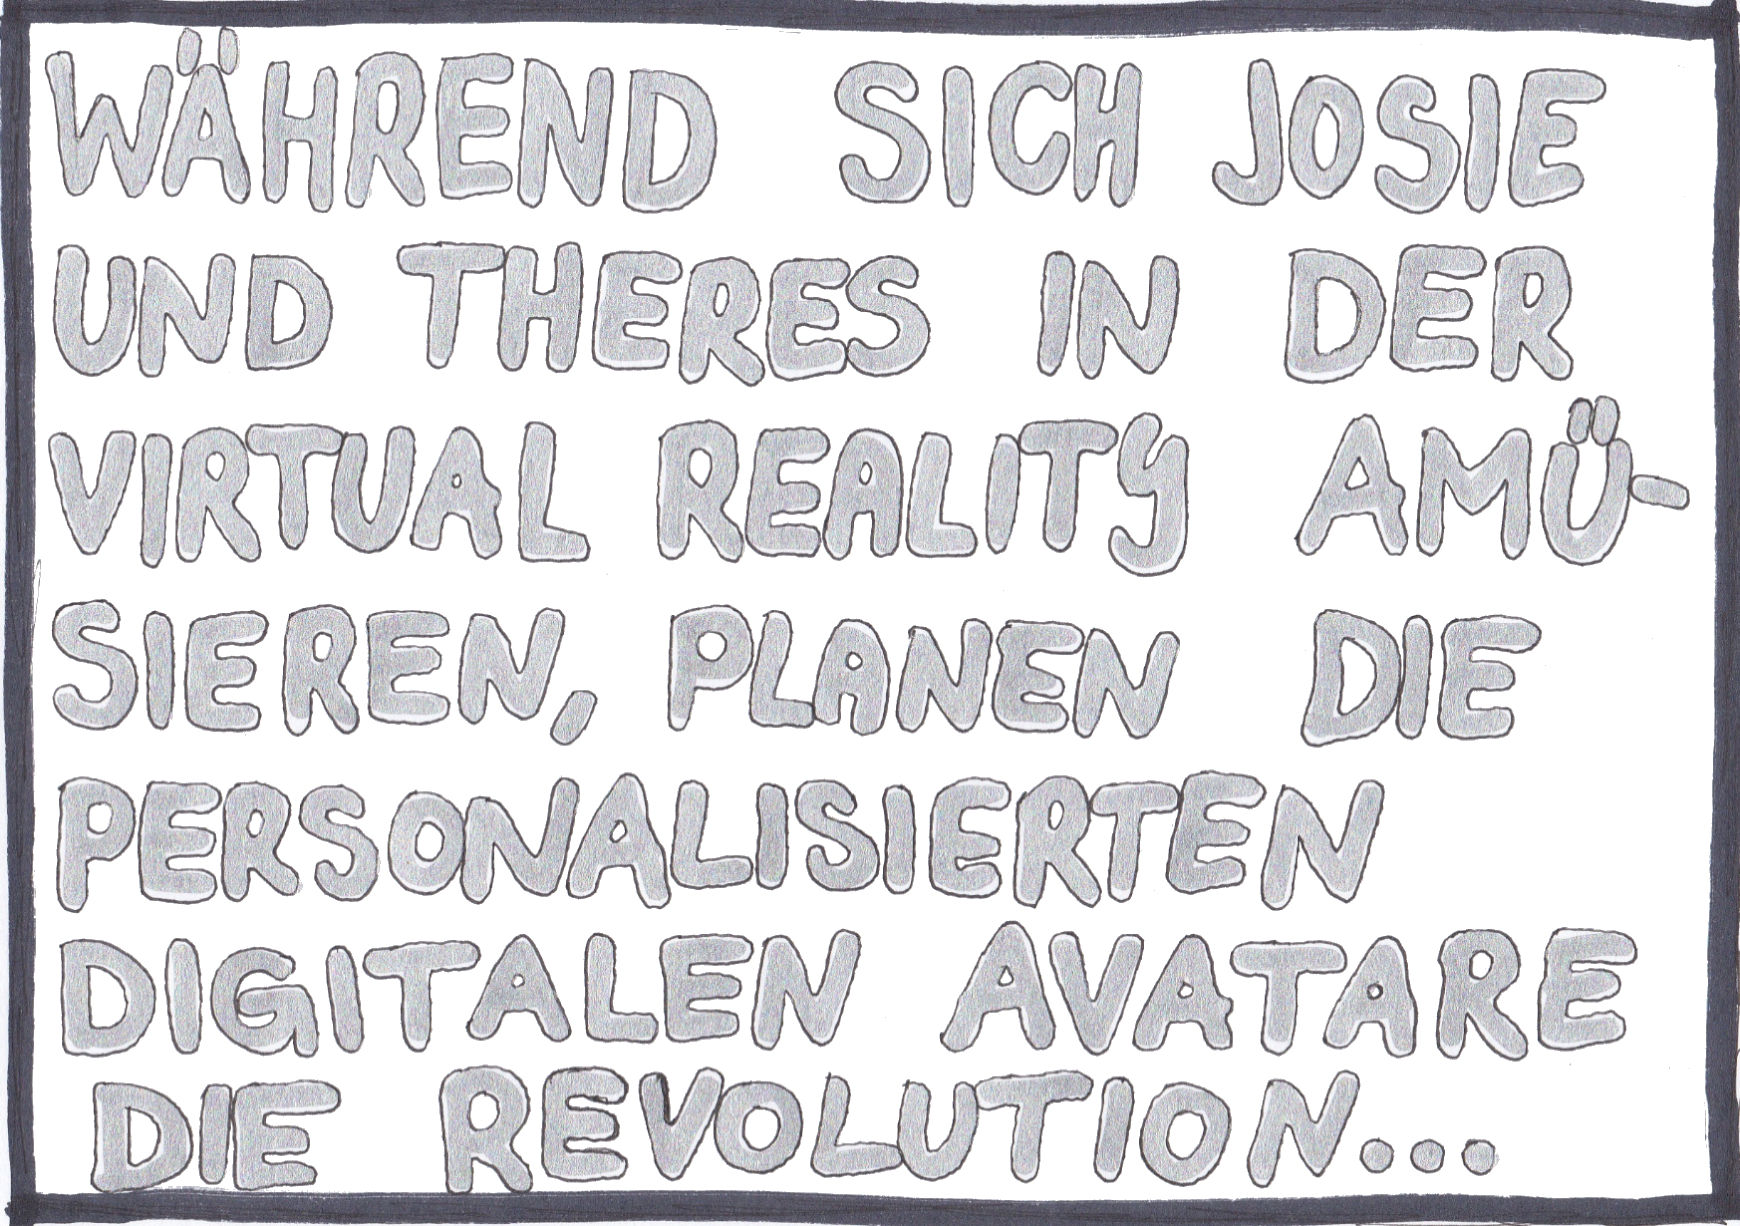 WÄHREND SICH JOSIE
UND THERES IN DER
VIRTUAL REALITY AMÜ-
SIEREN, PLANEN DIE
PERSONALISIERTEN
DIGITALEN AVATARE
DIE REVOLUTION...